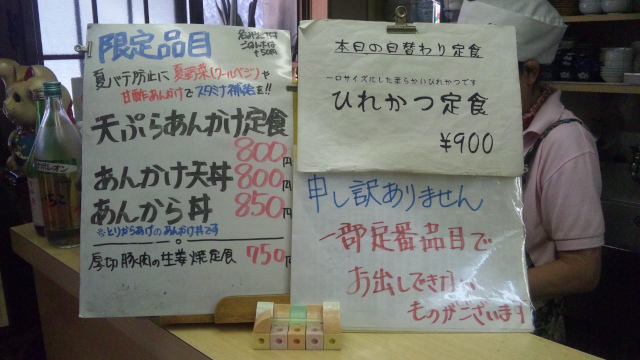 限定品目
夏バテ防止に夏野菜(クールベジ)や
甘酢あんかけでスタミナ補給を!!
天ぷらあんかけ定食
800円
あんかけ天丼 800円
あんから丼 850円
※とりからあげのあんかけ丼です
厚切豚肉の生姜焼定食 750円
+50円
本日の日替わり定食
一口サイズにした柔らかいひれかつです
ひれかつ定食
¥900
申し訳ありません
一部定番品目で
お出しできない
ものがございます